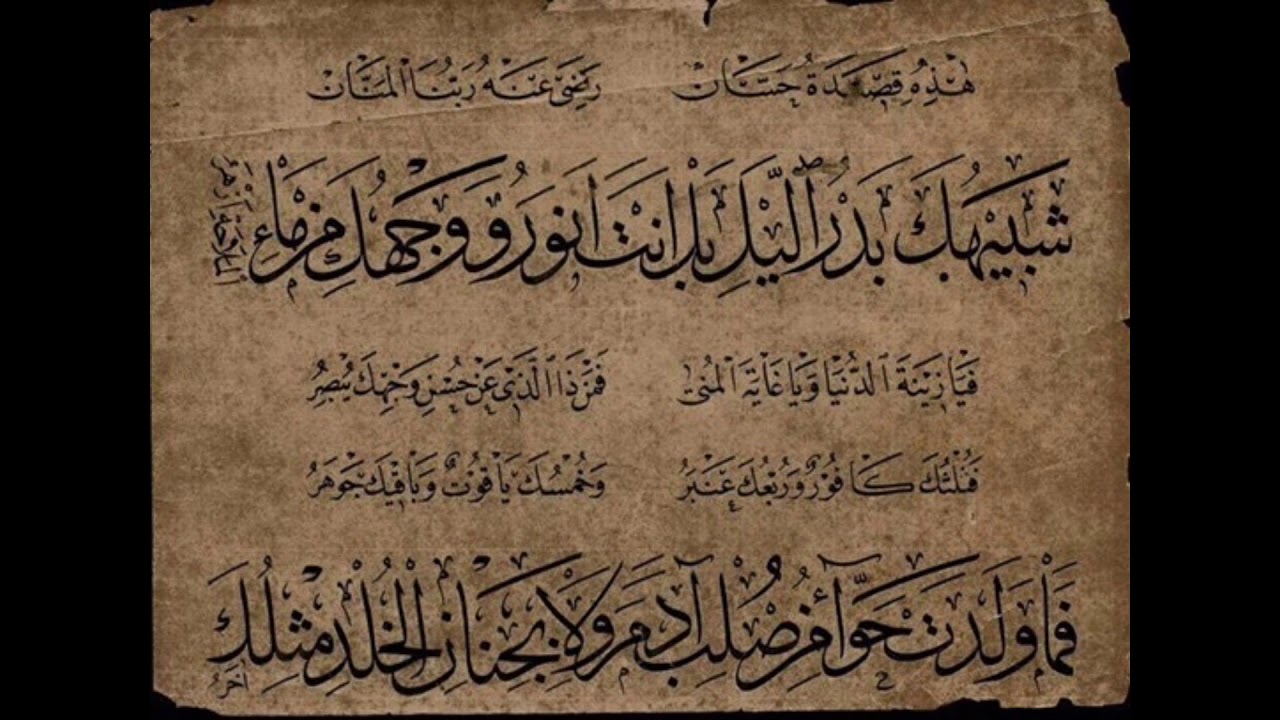 هٰذِهِ قِصَيدَةُ حَسَّانْ رَضِيَ عَنْهُ رَبُّنَا الْمَنَّانْ
شَبيهُكَ بَدْرُ اللَّيْلِ بَلْ اَنْتَ اَنْوَرُ وَوَجْهُكَ مِنْ مَاءِ الْمَلَاحَةِ اَزْهَرُ
فَيَا زِينَةَ الدُّنْيَا وَيَا غَايَةَ الْمُنٰى فَمَنْ ذَا الَّذِي عَنْ حُسْنِ وَجْهِكَ يُبْصِرُ
فَثُلْثُكَ كَافُورٌ وَرُبْعُكَ عَنْبَرُ وَخُمْسُكَ يَاقُوتٌ وَبَاقِيكَ جَوْهَرُ
فَمَا وَلَدَتْ حَوَّآءُ مِنْ صُلْبِ آدَمَ وَلَا بِجِنَانِ الْخُلْدِ مِثْلُكَ آخَرُ